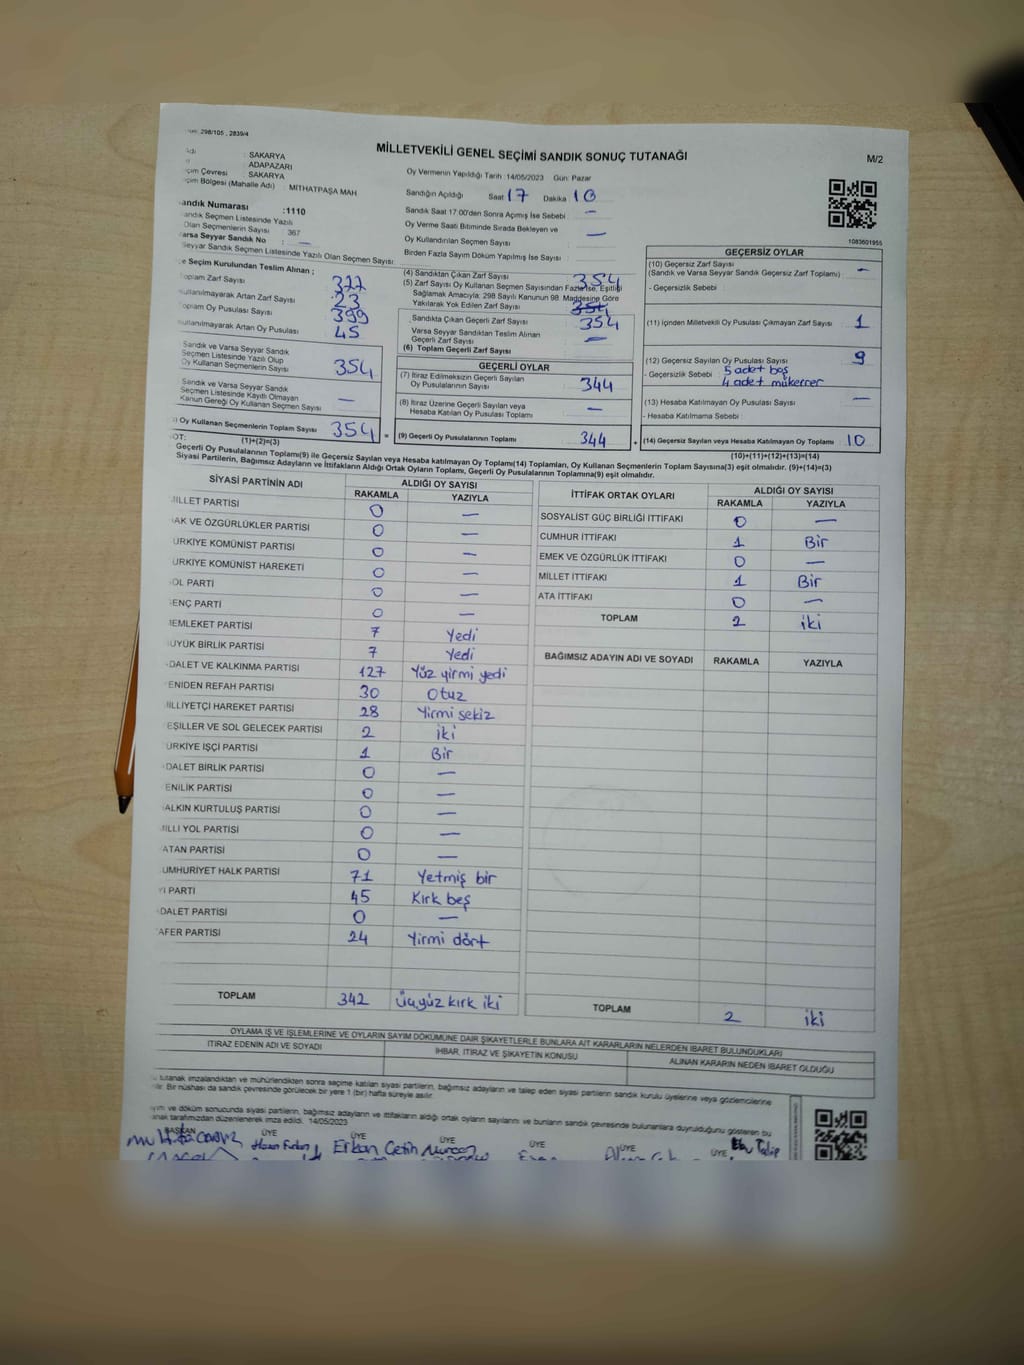 298/105 , 2839/4
MİLLETVEKİLİ GENEL SEÇİMİ SANDIK SONUÇ TUTANAĞI
M/2
: SAKARYA
: ADAPAZARI
çim Çevresi : SAKARYA
çim Bölgesi (Mahalle Adı) : MİTHATPAŞA MAH
Oy Vermenin Yapıldığı Tarih :14/05/2023 Gün: Pazar
Sandığın Açıldığı Saat 17 Dakika 10
Sandık Saat 17:00'den Sonra Açımış İse Sebebi : —
Oy Verme Saati Bitiminde Sırada Bekleyen ve
Oy Kullandırılan Seçmen Sayısı : —
Birden Fazla Sayım Döküm Yapılmış İse Sayısı :
andık Numarası :1110
andık Seçmen Listesinde Yazılı
Olan Seçmenlerin Sayısı : 367
arsa Seyyar Sandık No : —
Seyyar Sandık Seçmen Listesinde Yazılı Olan Seçmen Sayısı:
1083601955
e Seçim Kurulundan Teslim Alınan ;
oplam Zarf Sayısı 377
ullanılmayarak Artan Zarf Sayısı 23
oplam Oy Pusulası Sayısı 399
ullanılmayarak Artan Oy Pusulası 45
Sandık ve Varsa Seyyar Sandık
Seçmen Listesinde Yazılı Olup
Oy Kullanan Seçmenlerin Sayısı 354
Sandık ve Varsa Seyyar Sandık
Seçmen Listesinde Kayıtlı Olmayan
Kanun Gereği Oy Kullanan Seçmen Sayısı —
) Oy Kullanan Seçmenlerin Toplam Sayısı 354
(1)+(2)=(3)
(4) Sandıktan Çıkan Zarf Sayısı 354
(5) Zarf Sayısı Oy Kullanan Seçmen Sayısından Fazla İse, Eşitliği
Sağlamak Amacıyla; 298 Sayılı Kanunun 98. Maddesine Göre
Yakılarak Yok Edilen Zarf Sayısı 354
Sandıkta Çıkan Geçerli Zarf Sayısı : 354
Varsa Seyyar Sandıktan Teslim Alınan
Geçerli Zarf Sayısı : —
(6) Toplam Geçerli Zarf Sayısı :
GEÇERLİ OYLAR
(7) İtiraz Edilmeksizin Geçerli Sayılan
Oy Pusulalarının Sayısı : 344
(8) İtiraz Üzerine Geçerli Sayılan veya
Hesaba Katılan Oy Pusulası Toplamı : —
= (9) Geçerli Oy Pusulalarının Toplamı : 344
GEÇERSİZ OYLAR
(10) Geçersiz Zarf Sayısı
(Sandık ve Varsa Seyyar Sandık Geçersiz Zarf Toplamı) : —
- Geçersiz Sebebi :
(11) İçinden Milletvekili Oy Pusulası Çıkmayan Zarf Sayısı : 1
(12) Geçersiz Sayılan Oy Pusulası Sayısı : 9
- Geçersizlik Sebebi : 5 adet boş
4 adet mükerrer
(13) Hesaba Katılmayan Oy Pusulası Sayısı : —
- Hesaba Katılmama Sebebi :
+ (14) Geçersiz Sayılan veya Hesaba Katılmayan Oy Toplamı : 10
(10)+(11)+(12)+(13)=(14)
OT:
Geçerli Oy Pusulalarının Toplamı(9) ile Geçersiz Sayılan veya Hesaba katılmayan Oy Toplamı(14) Toplamları, Oy Kullanan Seçmenlerin Toplam Sayısına(3) eşit olmalıdır. (9)+(14)=(3)
Siyasi Partilerin, Bağımsız Adayların ve İttifakların Aldığı Ortak Oyların Toplamı, Geçerli Oy Pusulalarının Toplamına(9) eşit olmalıdır.
SİYASİ PARTİNİN ADI ALDIĞI OY SAYISI
RAKAMLA YAZIYLA
İLLET PARTİSİ 0 —
AK VE ÖZGÜRLÜKLER PARTİSİ 0 —
ÜRKİYE KOMÜNİST PARTİSİ 0 —
ÜRKİYE KOMÜNİST HAREKETİ 0 —
OL PARTİ 0 —
ENÇ PARTİ 0 —
EMLEKET PARTİSİ 7 Yedi
ÜYÜK BİRLİK PARTİSİ 7 Yedi
DALET VE KALKINMA PARTİSİ 127 Yüz yirmi yedi
ENİDEN REFAH PARTİSİ 30 Otuz
İLLİYETÇİ HAREKET PARTİSİ 28 Yirmi sekiz
EŞİLLER VE SOL GELECEK PARTİSİ 2 iki
ÜRKİYE İŞÇİ PARTİSİ 1 Bir
DALET BİRLİK PARTİSİ 0 —
ENİLİK PARTİSİ 0 —
ALKIN KURTULUŞ PARTİSİ 0 —
İLLİ YOL PARTİSİ 0 —
ATAN PARTİSİ 0 —
UMHURİYET HALK PARTİSİ 71 Yetmiş bir
Yİ PARTİ 45 Kırk beş
DALET PARTİSİ 0 —
AFER PARTİSİ 24 Yirmi dört
TOPLAM 342 Üçyüz kırk iki
İTTİFAK ORTAK OYLARI ALDIĞI OY SAYISI
RAKAMLA YAZIYLA
SOSYALİST GÜÇ BİRLİĞİ İTTİFAKI 0 —
CUMHUR İTTİFAKI 1 Bir
EMEK VE ÖZGÜRLÜK İTTİFAKI 0 —
MİLLET İTTİFAKI 1 Bir
ATA İTTİFAKI 0 —
TOPLAM 2 iki
BAĞIMSIZ ADAYIN ADI VE SOYADI RAKAMLA YAZIYLA
TOPLAM 2 iki
OYLAMA İŞ VE İŞLEMLERİNE VE OYLARIN SAYIM DÖKÜMÜNE DAİR ŞİKAYETLERLE BUNLARA AİT KARARLARIN NELERDEN İBARET BULUNDUKLARI
İTİRAZ EDENİN ADI VE SOYADI İHBAR, İTİRAZ VE ŞİKAYETİN KONUSU ALINAN KARARIN NEDEN İBARET OLDUĞU
tutanak imzalandıktan ve mühürlendikten sonra seçime katılan siyasi partilerin, bağımsız adayların ve talep eden siyasi partilerin sandık kurulu üyelerine veya gözlemcilerine
Bir nüshası da sandık çevresinde görülecek bir yere 1 (bir) hafta süreyle asılır.
yım ve döküm sonucunda siyasi partilerin, bağımsız adayların ve ittifakların aldığı ortak oyların sayılarını ve bunların sandık çevresinde bulunanlara duyrulduğunu gösteren bu
anak tarafımızdan düzenlenerek imza edildi. 14/05/2023
BAŞKAN ÜYE ÜYE ÜYE ÜYE ÜYE ÜYE
Erkan Çetin